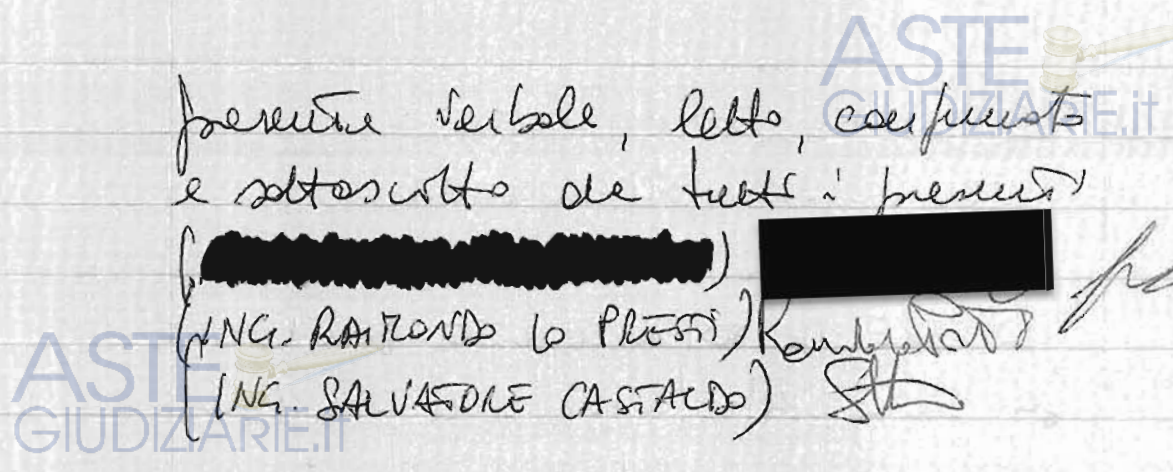 ASTE GIUDIZIARIE.it
presente verbale, letto, confermato
e sottoscritto da tutti i presenti
(ING. RAIMONDO LO PRESTI)
(ING. SALVATORE CASTALDO)
ASTE GIUDIZIARIE.it